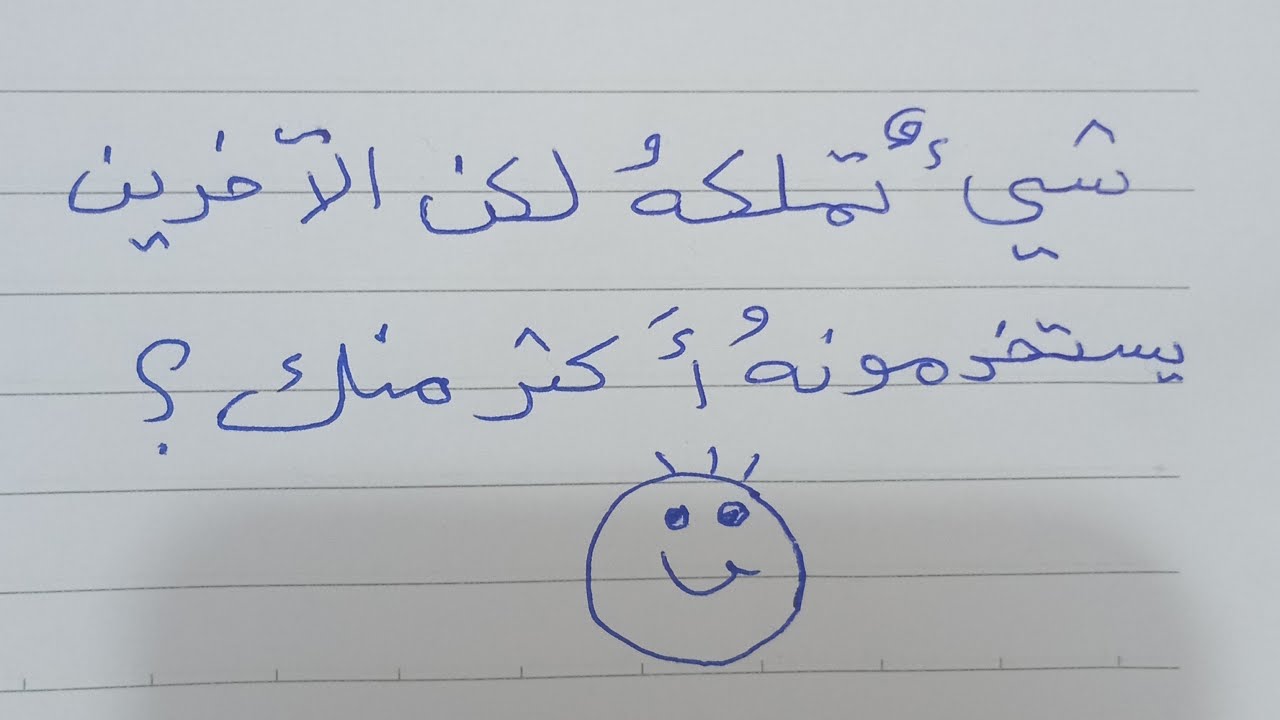 شيءٌ تملكهُ لكن الآخرين
يستخدمونهُ أَكثر منك ؟